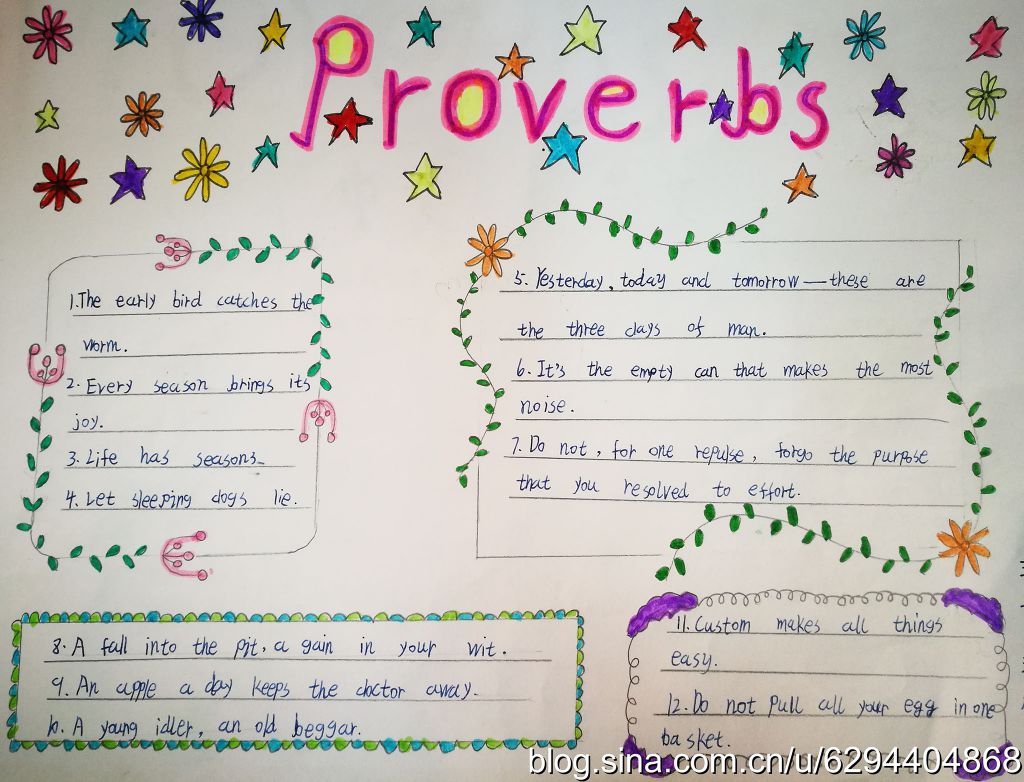 Proverbs
1.The early bird catches the
worm.
2. Every season brings its
joy.
3. Life has seasons.
4. Let sleeping dogs lie.
5. Yesterday, today and tomorrow—these are
the three days of man.
6. It's the empty can that makes the most
noise.
7. Do not, for one repulse, forgo the purpose
that you resolved to effort.
8. A fall into the pit, a gain in your wit.
9. An apple a day keeps the doctor away.
10. A young idler, an old beggar.
11. Custom makes all things
easy.
12. Do not pull all your egg in one
basket.
blog.sina.com.cn/u/6294404868